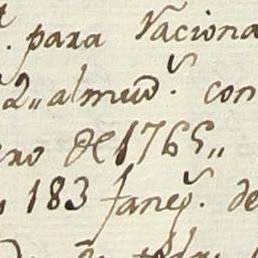 para Naciona
2,, almud.s con
ero de 1765,,
183 faneg.s de